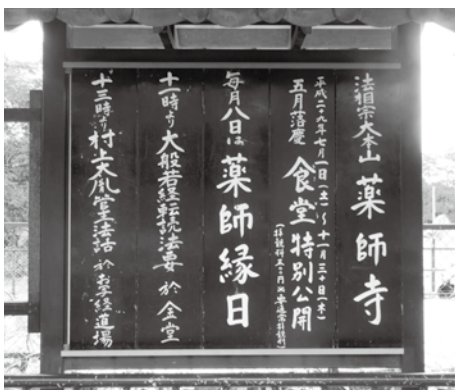 法相宗大本山 薬師寺
平成二九年七月一日(土)〜十一月三十日(木)
五月落慶 食堂 特別公開
毎月八日は 薬師縁日
十一時より 大般若経転読法要 於 金堂
十三時より 村上太胤堂法話 於 お写経道場